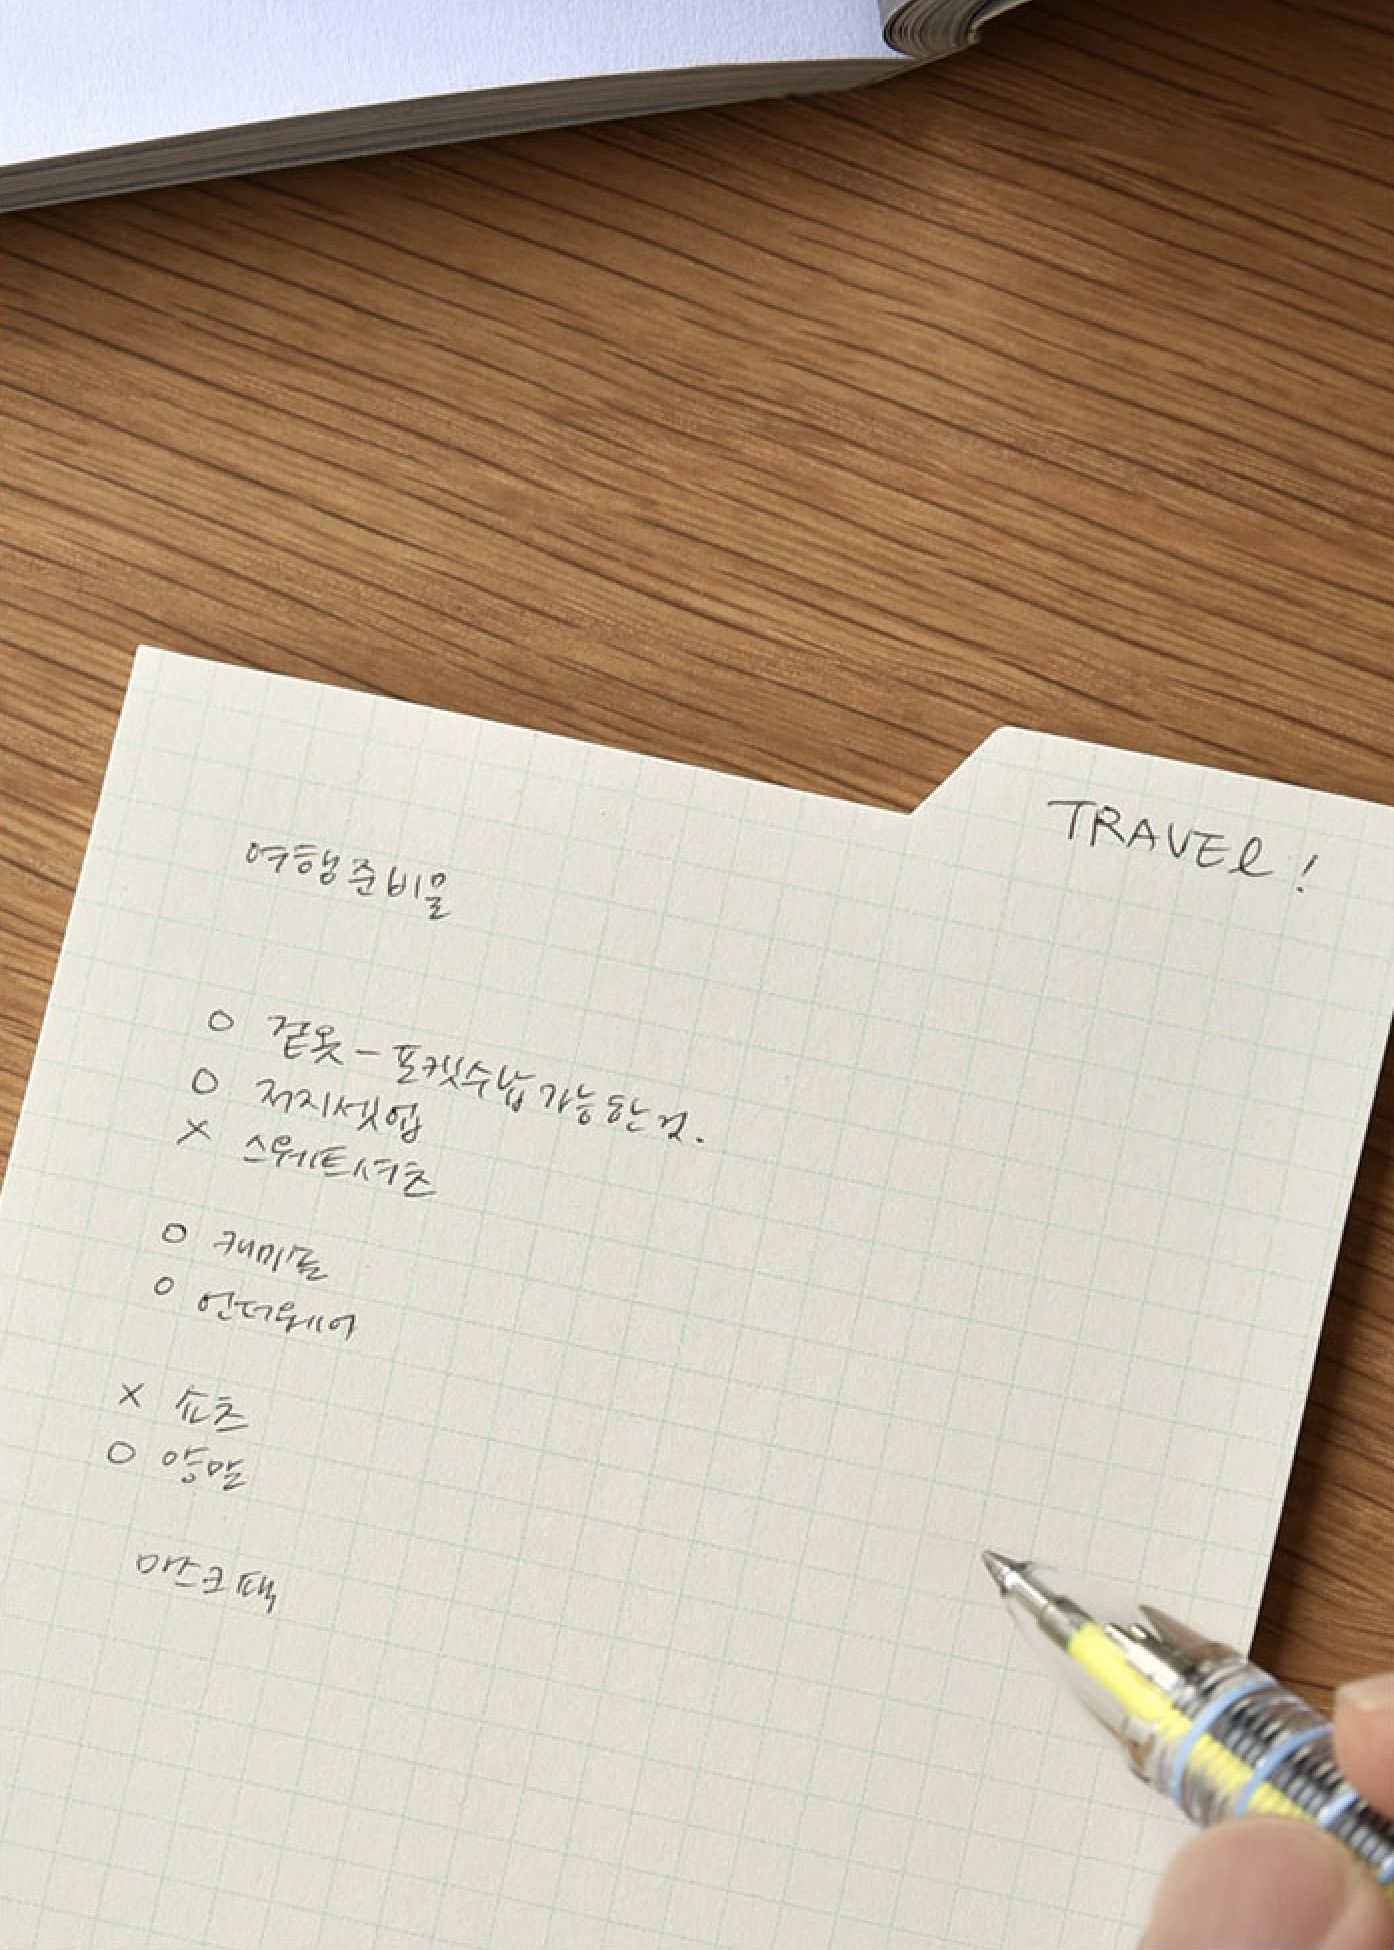 TRAVEL!
여행준비물
O 겉옷 - 포켓수납가능한것.
O 저지셋업
X 스웨트셔츠
O 캐미솔
O 언더웨어
X 쇼츠
O 양말
마스크팩